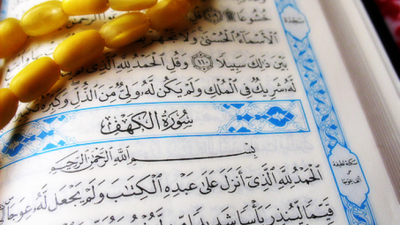 خُشُوعًا
ٱلْأَسْمَآءُ ٱلْحُسْنَىٰ وَلَا
بَيْنَ ذَٰلِكَ سَبِيلًا ١١٠ وَقُلِ ٱلْحَمْدُ لِلَّهِ
لَّهُۥ شَرِيكٌ فِى ٱلْمُلْكِ وَلَمْ يَكُن لَّهُۥ وَلِىٌّ مِّنَ ٱلذُّلِّ وَكَبِّرْهُ
سُورَةُ الكَهْفِ
بِسْمِ ٱللَّهِ ٱلرَّحْمَٰنِ ٱلرَّحِيمِ
ٱلْحَمْدُ لِلَّهِ ٱلَّذِىٓ أَنزَلَ عَلَىٰ عَبْدِهِ ٱلْكِتَٰبَ وَلَمْ يَجْعَل لَّهُۥ عِوَجَا
قَيِّمًا لِّيُنذِرَ بَأْسًا شَدِيدًا
سجدة